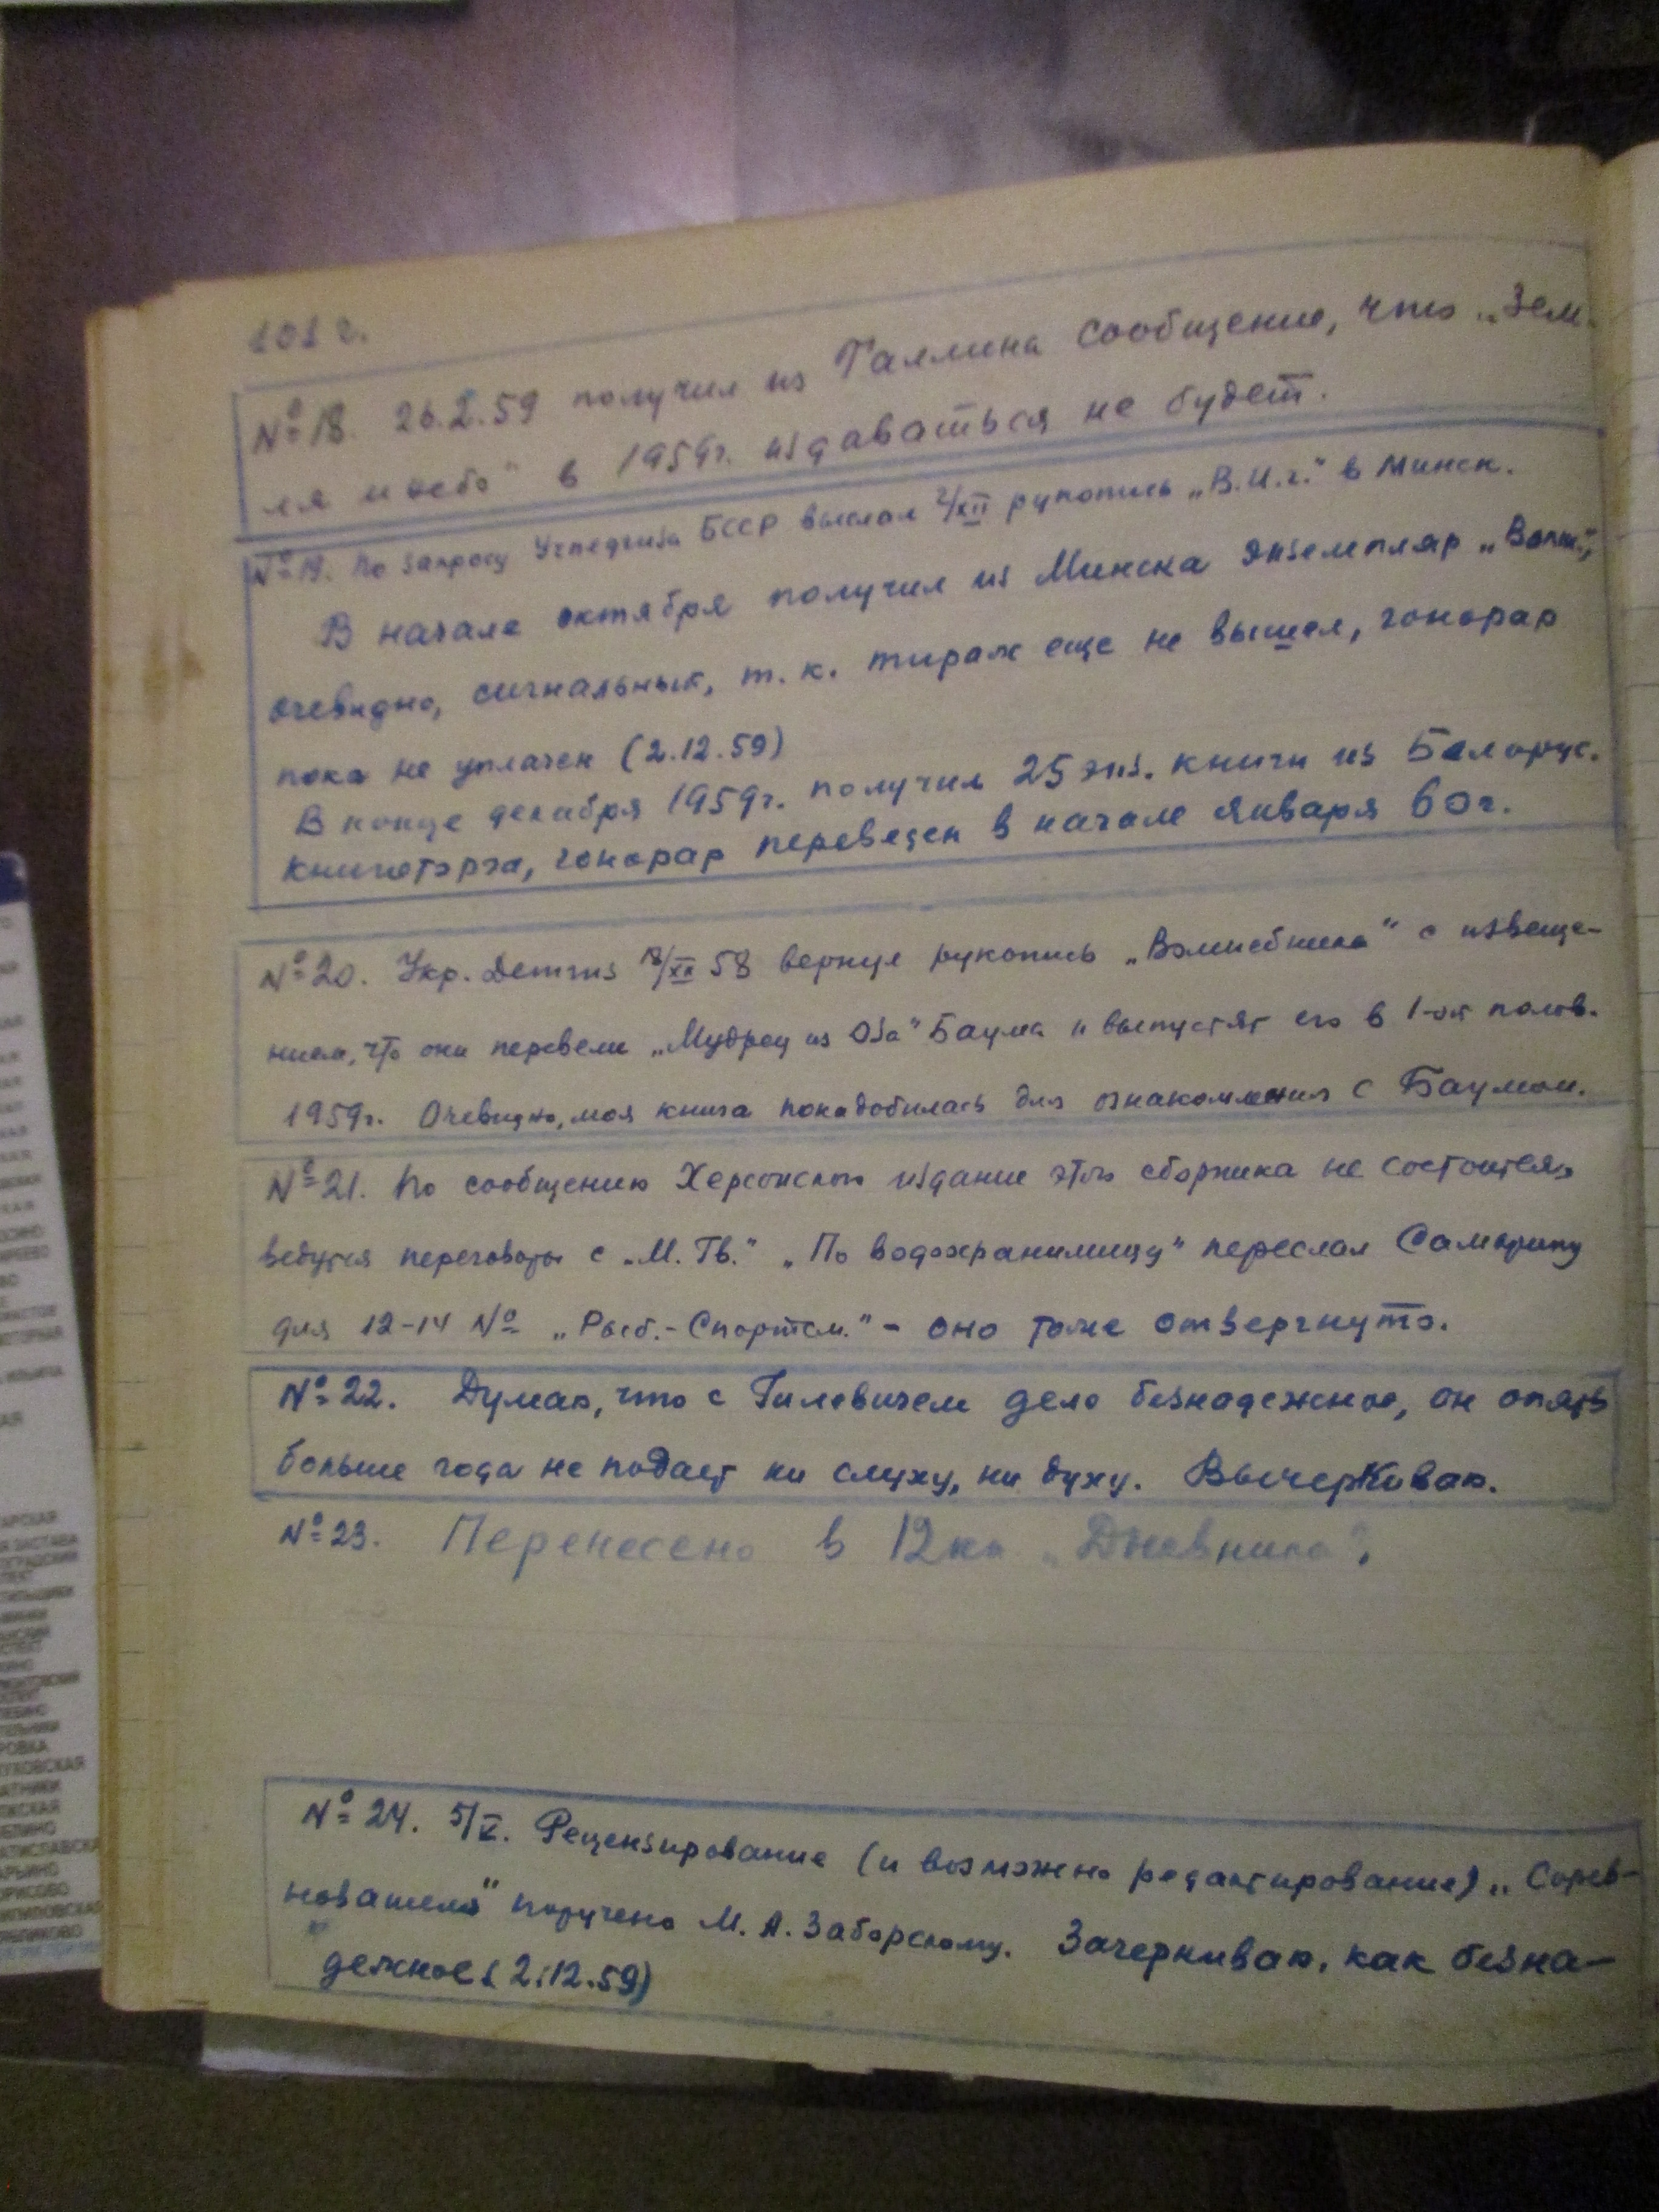 101 г.
№ 18. 26.2.59 получил из Таллина сообщение, что „Зем-
ля и небо" в 1959г. издаваться не будет.
№ 19. По запросу Учпедгиза БССР выслал 2/XII рукопись „В.И.г." в Минск.
В начале октября получил из Минска экземпляр „Волш.",
очевидно, сигнальный, т. к. тираж еще не вышел, гонорар
пока не уплачен (2.12.59)
В конце декабря 1959г. получил 25 экз. книги из Белорус.
книготорга, гонорар переведен в начале января 60г.
№ 20. Укр. Детгиз 18/XII 58 вернул рукопись „Волшебника" с извеще-
нием, что они перевели „Мудрец из Оза" Баума и выпустят его в 1-ой полов.
1959г. Очевидно, моя книга понадобилась для ознакомления с Баумом.
№ 21. По сообщению Херсонского издание этого сборника не состоится,
ведутся переговоры с „М. Гв." „По водохранилищу" переслал Самарину
для 12-14 № „Рыб.-Спортсм." - оно тоже отвергнуто.
№ 22. Думаю, что с Гилевичем дело безнадежное, он опять
больше года не подает ни слуху, ни духу. Вычеркиваю.
№ 23. Перенесено в 12 кн „Дневника".
№ 24. 5/V. Рецензирование (и возможно редактирование) „Сорев-
нователя" поручено М. А. Заборскому. Зачеркиваю, как безна-
дежное (2.12.59)
ЛУХОВСКАЯ
АТНИКИ
ЖСКАЯ
БЛИНО
АТИСЛАВСКАЯ
АРЬИНО
ОРИСОВО
ИПИЛОВСКАЯ
ЯБЛИКОВО